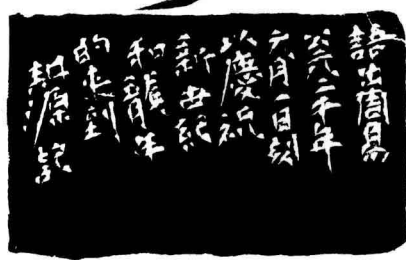 語出周易
公元二千年
元月一日刻
以慶祝
新世紀
和龍年
的來到
源記